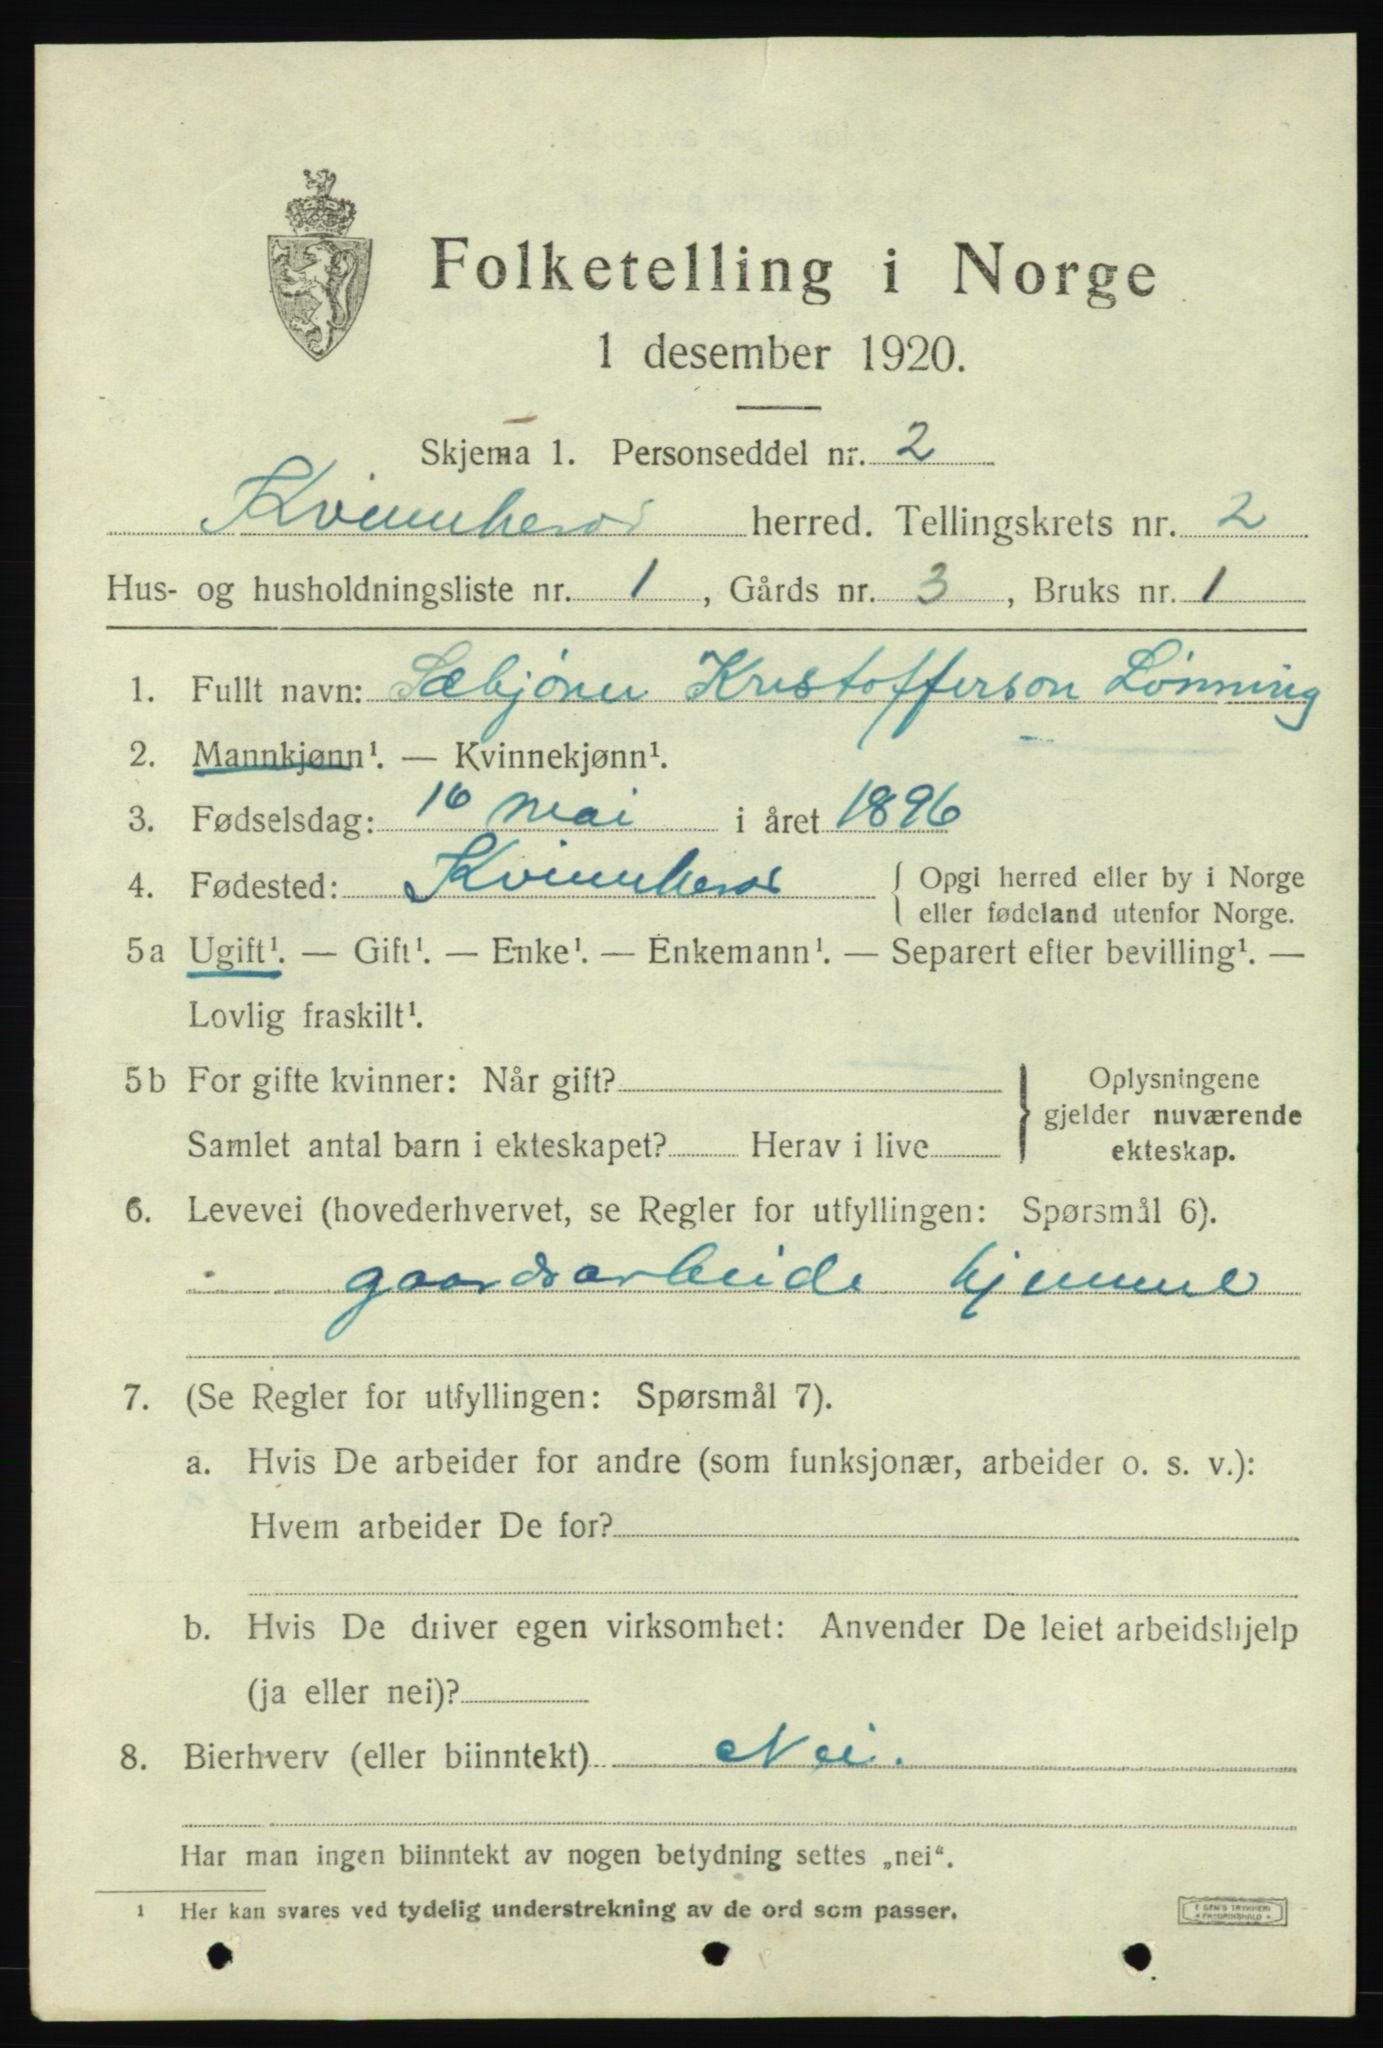 Folketelling i Norge
1 desember 1920.
Skjema 1. Personseddel nr. 2
Kvinnherad herred. Tellingskrets nr. 2
Hus- og husholdningsliste nr. 1, Gårds nr. 3, Bruks nr. 1
1. Fullt navn: Sæbjörn Kristofferson Lönning
2. Mannkjønn¹. — Kvinnekjønn¹.
3. Fødselsdag: 16 mai i året 1896
4. Fødested: Kvinnherad { Opgi herred eller by i Norge
eller fødeland utenfor Norge.
5a Ugift¹. — Gift¹. — Enke¹. — Enkemann¹. — Separert efter bevilling¹. —
Lovlig fraskilt¹.
5b For gifte kvinner: Når gift? } Oplysningene
gjelder nuværende
Samlet antal barn i ekteskapet? Herav i live
ekteskap.
6. Levevei (hovederhvervet, se Regler for utfyllingen: Spørsmål 6).
gaardsarbeide hjemme
7. (Se Regler for utfyllingen: Spørsmål 7).
a. Hvis De arbeider for andre (som funksjonær, arbeider o. s. v.):
Hvem arbeider De for?
b. Hvis De driver egen virksomhet: Anvender De leiet arbeidshjelp
(ja eller nei)?
8. Bierhverv (eller biinntekt) Nei.
Har man ingen biinntekt av nogen betydning settes „nei“.
¹ Her kan svares ved tydelig understrekning av de ord som passer.